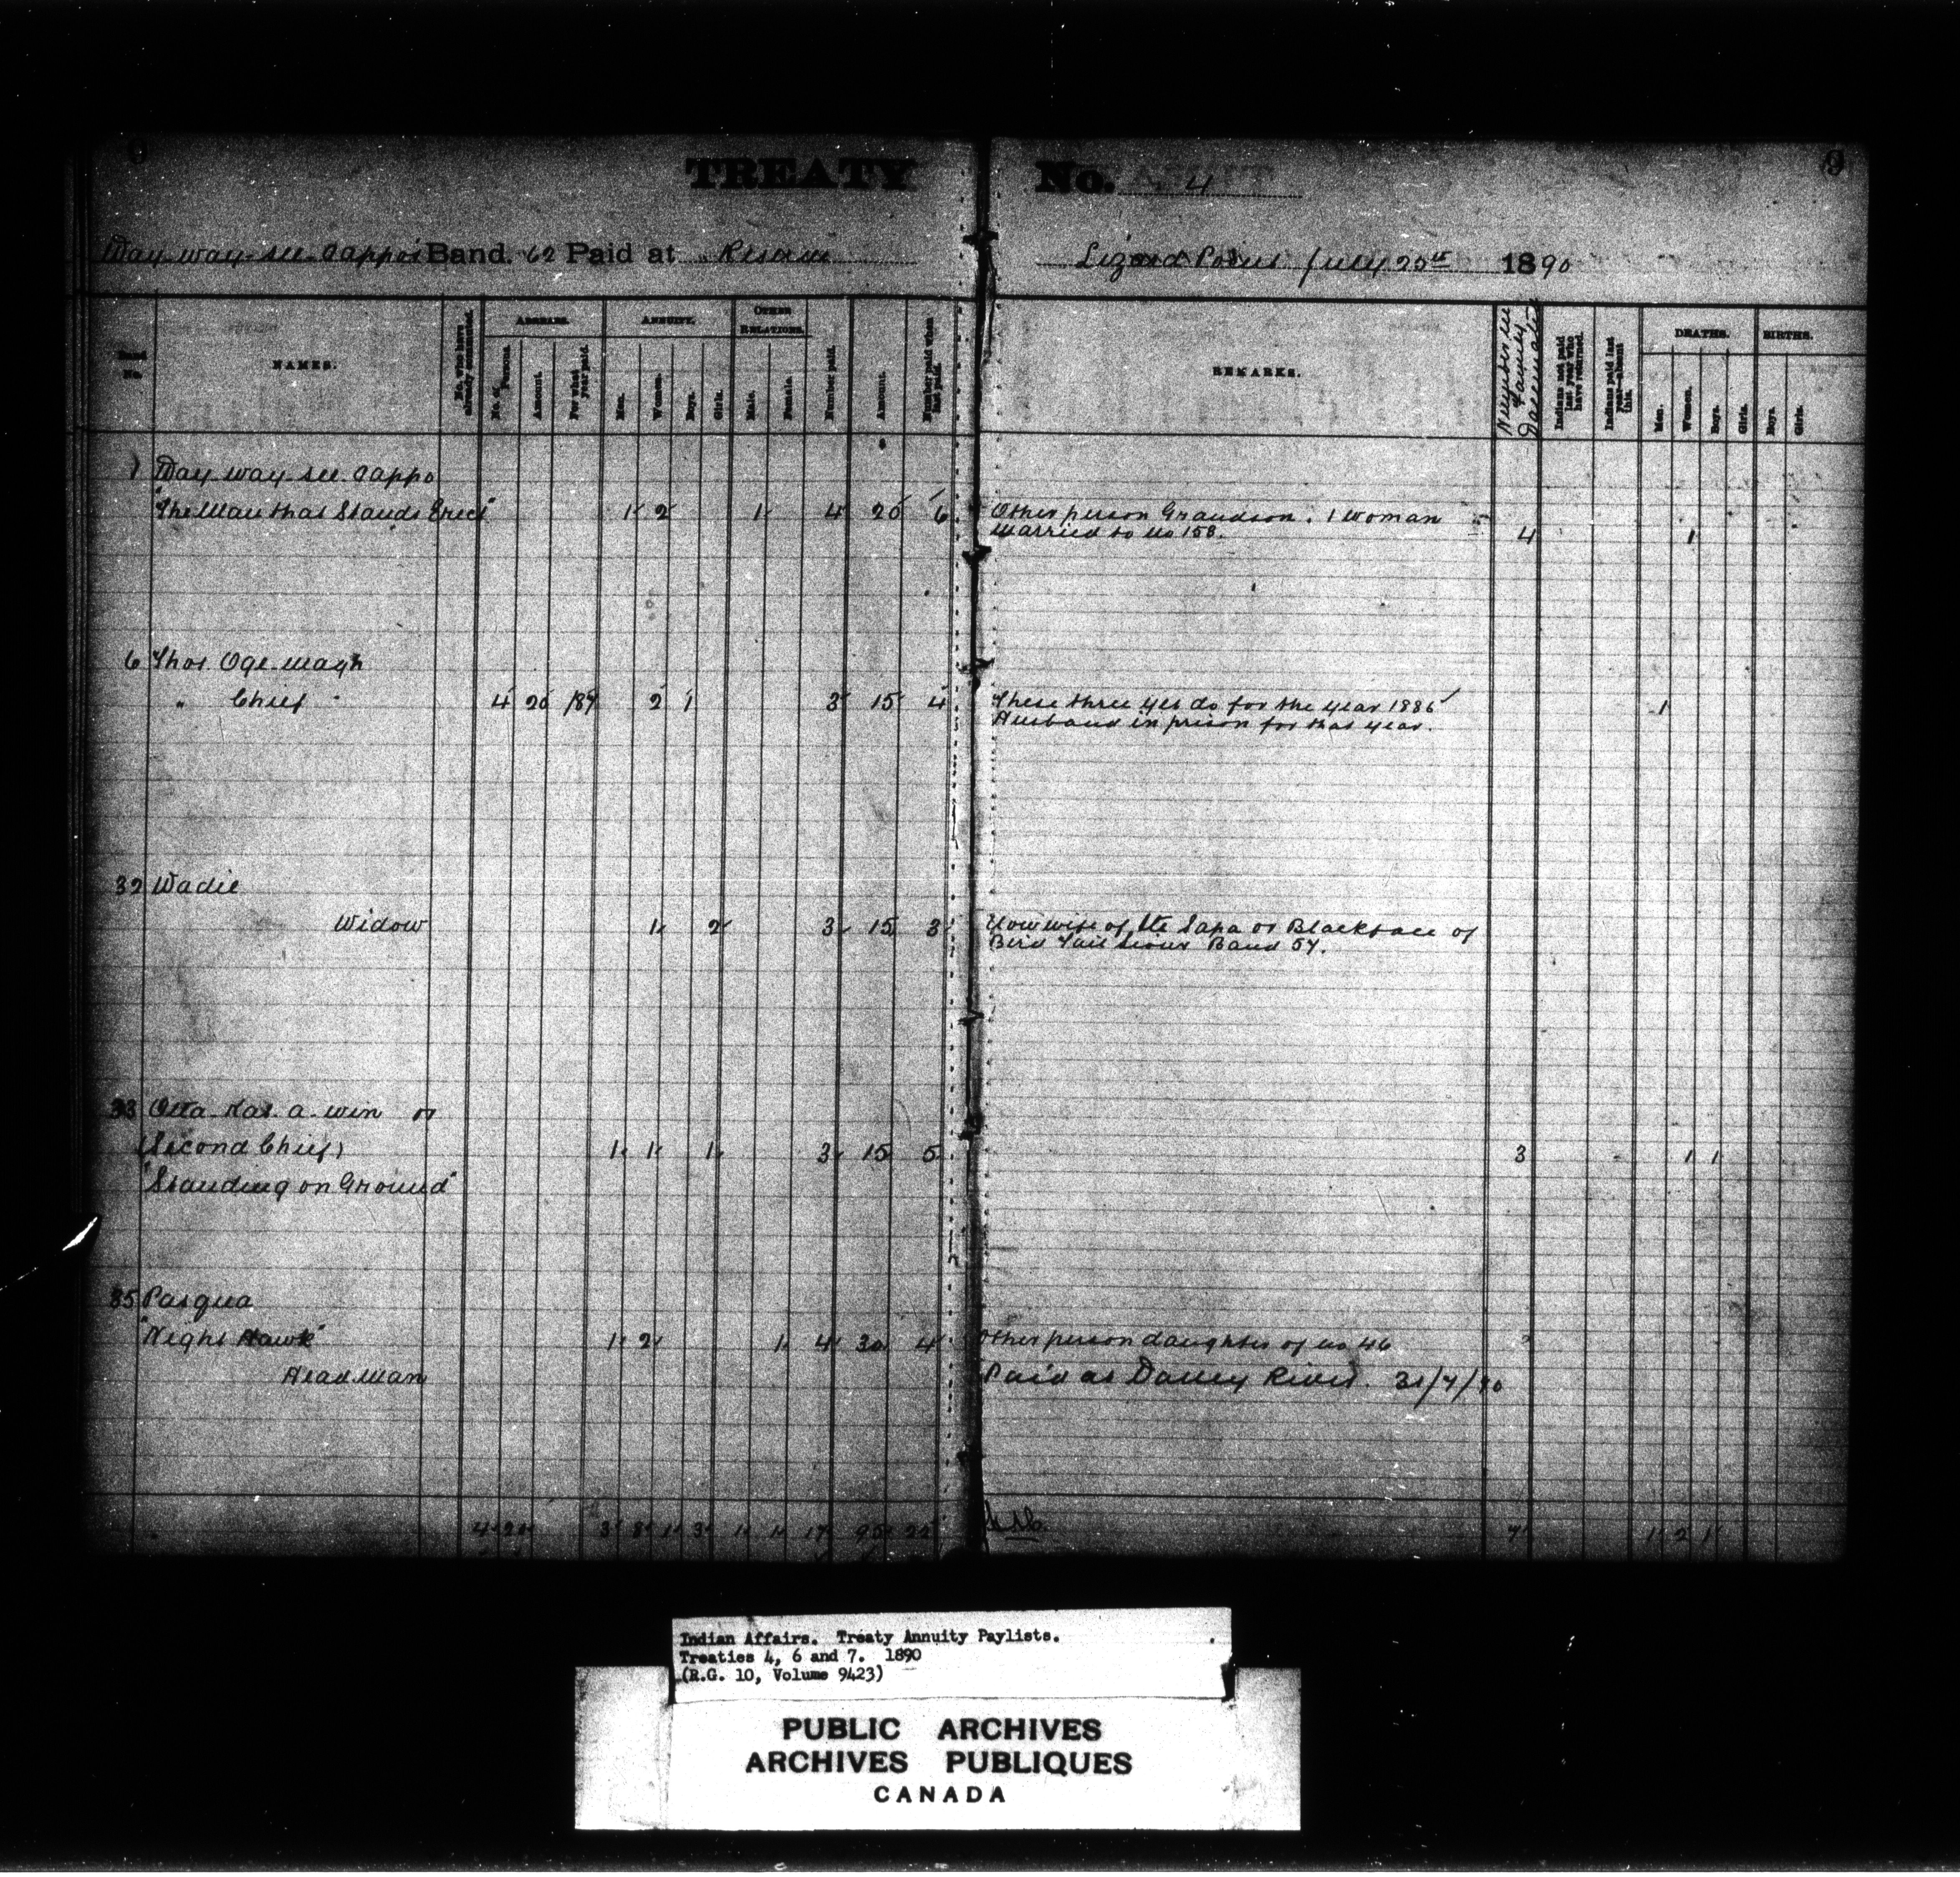 9 TREATY No. 4 9
Way-way-see-Cappo's Band. 62 Paid at Reserve Lizard Point July 25th 1890
Band No.
NAMES.
No. who have already commuted.
ARREARS.
No. of Persons.
Amount.
For what year paid.
ANNUITY.
Men.
Women.
Boys.
Girls.
OTHER RELATIONS.
Male.
Female.
Number paid.
Amount.
Number paid when last paid.
REMARKS.
Number in Family
Indians not paid last year who have returned.
Indians paid last year—absent this.
DEATHS.
Men.
Women.
Boys.
Girls.
BIRTHS.
Boys.
Girls.
1 Way-way-see-Cappo
"The Man that Stands Erect" 1 2 1 4 20 6 Other person Grandson. 1 woman
married to no 158. 4 1
6 Thos Oge-magh
" Chief 4 20 /89 2 1 3 15 4 These three yet do for the year 1886 1
Husband in prison for that year.
32 Wadie
Widow 1 2 3 15 3 Now wife of Ite Sapa or Blackface of
Bird Tail Sioux Band 57.
33 Otta-kas-a-win or
(Second Chief) 1 1 1 3 15 5 3 1 1
"Standing on Ground"
35 Pasqua
"Night Hawk" 1 2 1 4 30 4 Other person daughter of no 46
Head Man Paid at Valley River. 31/7/90
4 20 3 8 1 3 1 1 17 95 22 7 1 2 1
Indian Affairs. Treaty Annuity Paylists.
Treaties 4, 6 and 7. 1890
(R.G. 10, Volume 9423)
PUBLIC ARCHIVES
ARCHIVES PUBLIQUES
CANADA